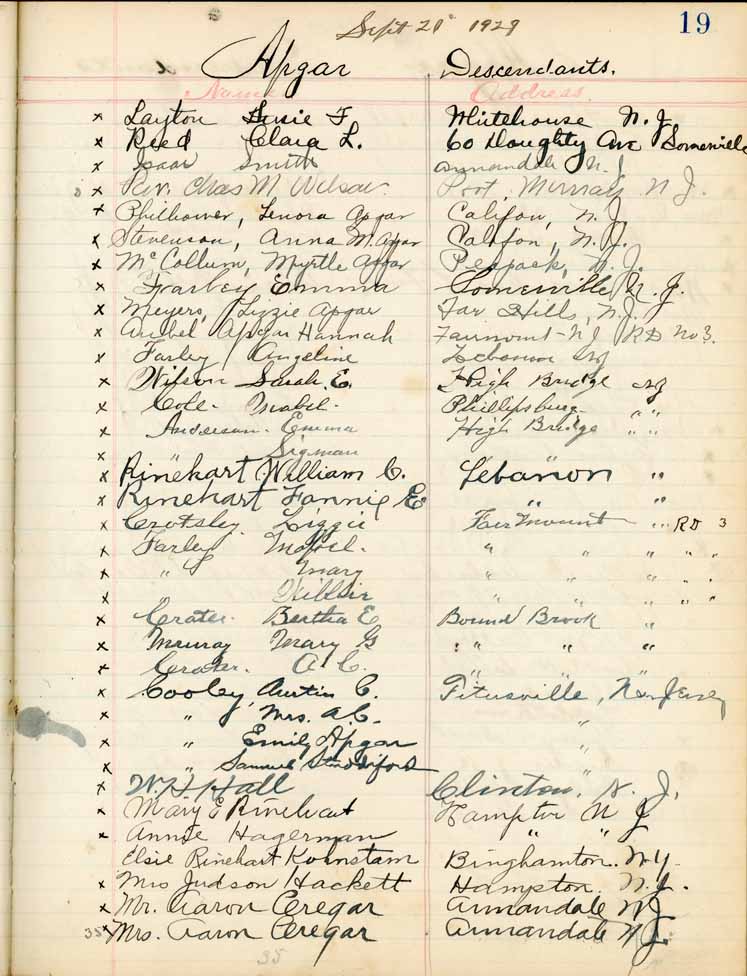 Sept 21 1929
19
Apgar Descendants.
Name Address.
x Layton Susie F. Whitehouse N.J.
x Reed Clara L. 60 Doughty Ave Somerville
x Isaac Smith Annandale N.J
x Rev. Chas M Wilson Port Murray N J.
x Philhower, Lenora Apgar Califon, N.J.
x Stevenson, Anna M. Apgar Califon, N.J.
x McCollum, Myrtle Apgar Peapack, N.J.
x Farley Emma Somerville N.J.
x Meyers, Lizzie Apgar Far Hills, N.J.
x Apgar Hannah Fairmount - NJ RD No 3.
x Farley Angeline Lebanon NJ
x Wilson Sarah. E. High Bridge NJ
x Cole. Mabel. Phillipsburg " "
x Anderson. Emma High Bridge " "
x Sigman
x Rinehart William C. Lebanon "
x Rinehart Fannie E " "
x Crotsley Lizzie Fairmount " RD 3
x Farley " " " " "
x " Mary " " " " "
x " " " " "
x Crater. Bertha E Bound Brook "
x Murray Mary G " " "
x Crater. A C. "
x Cooley, Austin C. Titusville, New Jersey
x " Mrs. A.C. "
x " Emily Apgar "
x " Samuel Studdiford "
x W.H. Hall Clinton, N. J.
x Mary E Rinehart Hampton N J
x Annie Hagerman " "
Elsie Rinehart Kohnstam Binghamton. N.Y.
x Mrs Judson Hackett Hampton. N.J.
x Mr. Aaron Cregar Annandale NJ
35 x Mrs. Aaron Cregar Annandale NJ.
35